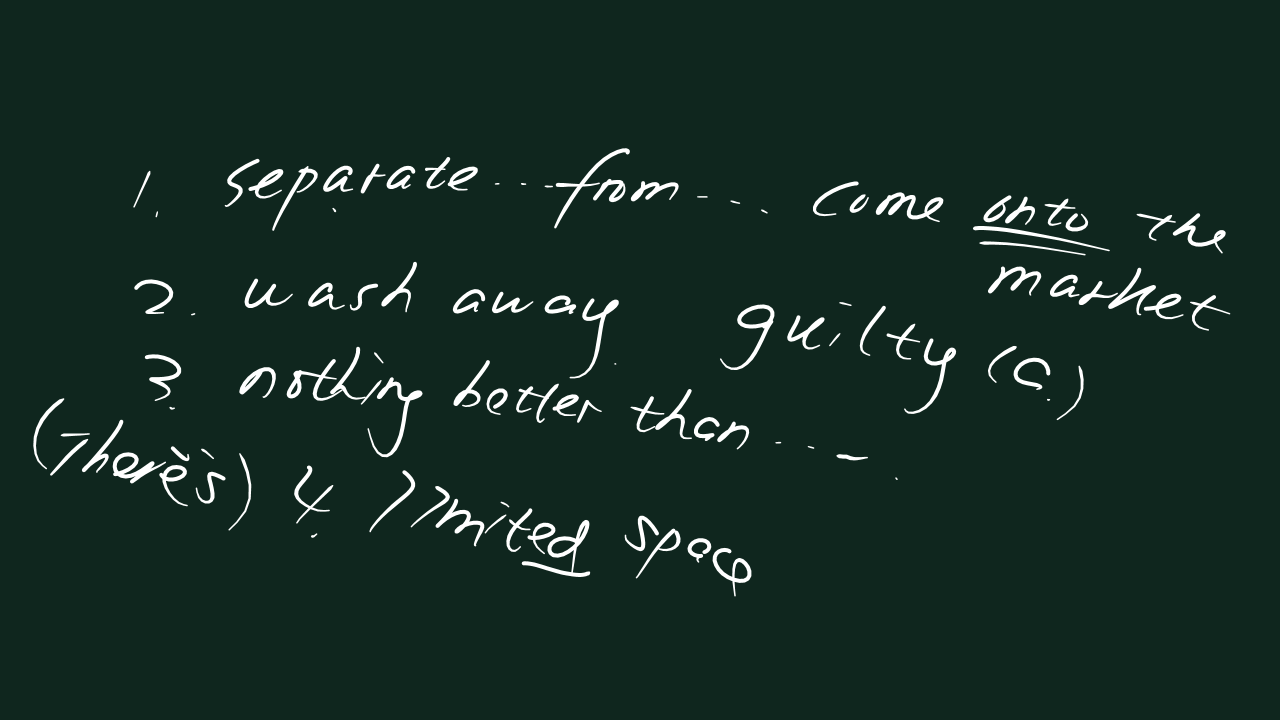 1. separate ... from ... come onto the
market
2. wash away guilty (a.)
3. nothing better than ...
(There's) 4. limited space